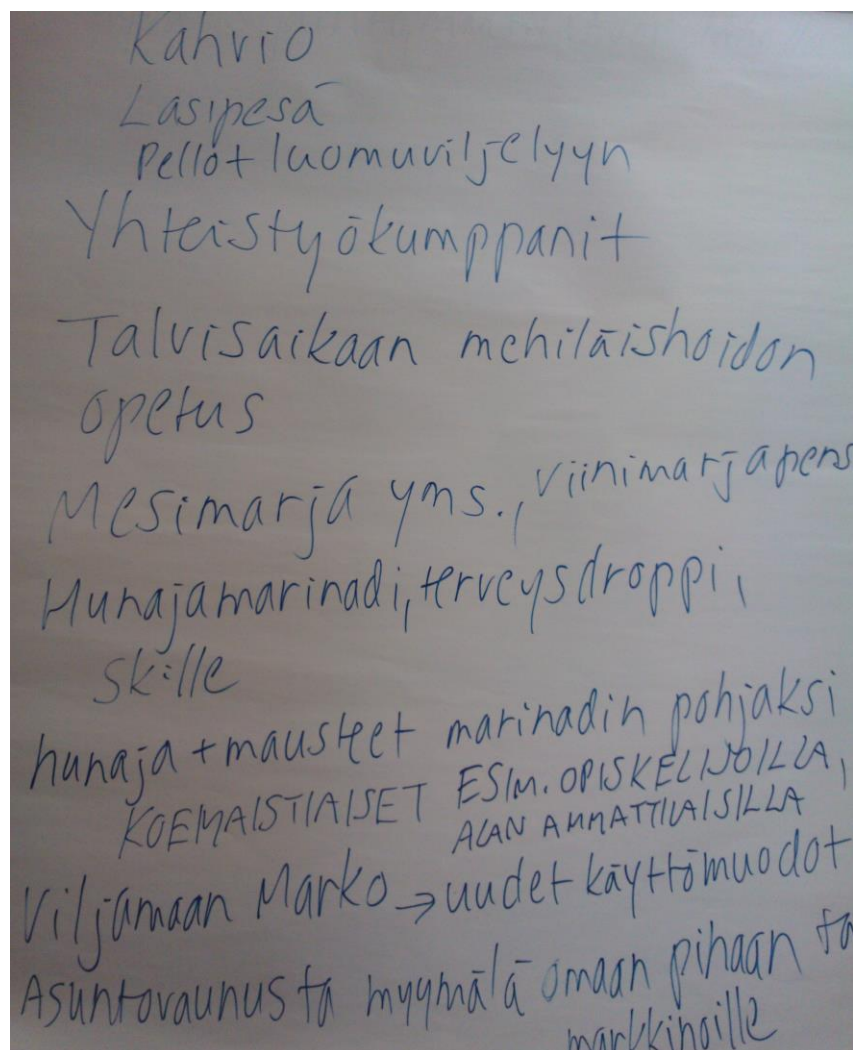 Kahvio
Lasipesä
Pellot luomuviljelyyn
Yhteistyökumppanit
Talvisaikaan mehiläishoidon
opetus
Mesimarja yms., viinimarjapens
Hunajamarinadi, terveysdroppi,
skille
hunaja + mausteet marinadin pohjaksi
KOEMAISTIAISET ESIM. OPISKELIJOILLA,
ALAN AMMATTILAISILLA
Viljamaan Marko → uudet käyttömuodot
Asuntovaunusta myymälä omaan pihaan ta
markkinoille